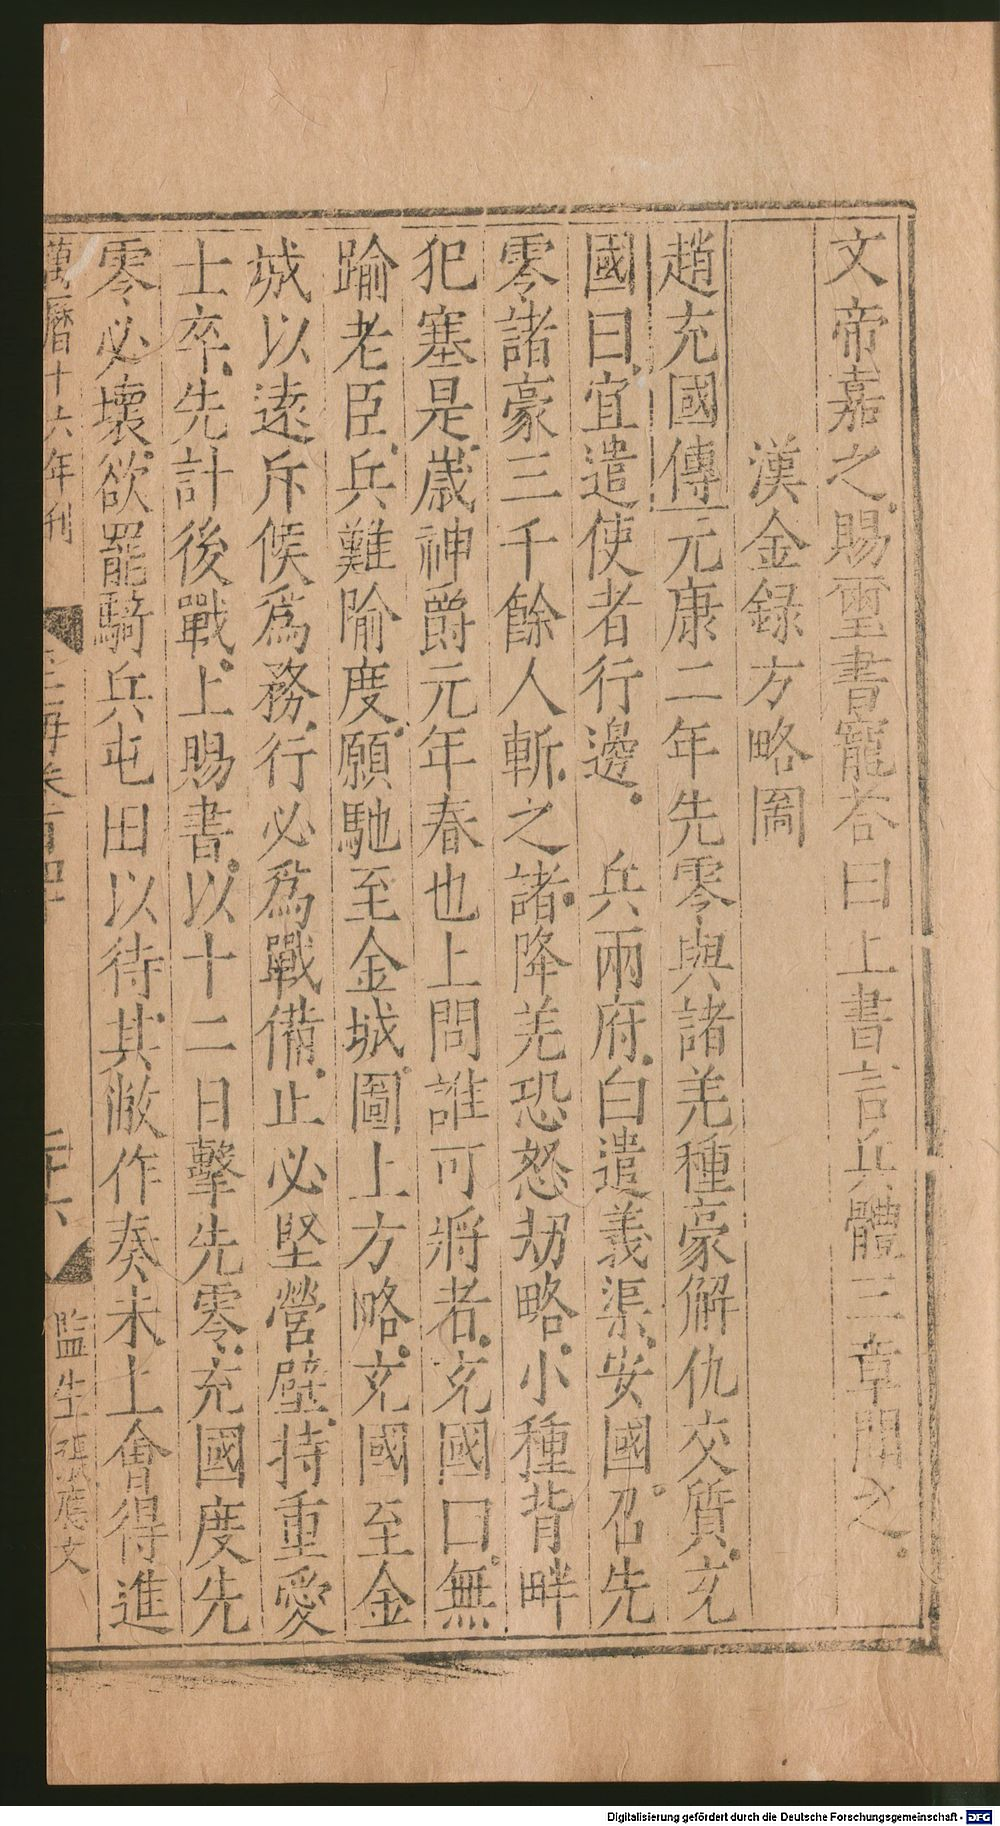 文帝嘉之賜璽書寵荅曰上書言兵體三章聞之
漢金録方略圖
趙充國傳元康二年先零與諸羌種豪解仇交質充
國曰宜遣使者行邊兵兩府白遣義渠安國召先
零諸豪三千餘人斬之諸降羌恐怒刼略小種背畔
犯塞是歲神爵元年春也上問誰可將者充國曰無
踰老臣兵難隃度願馳至金城圖上方略充國至金
城以逺斥候爲務行必爲戰備止必堅營壁持重愛
士卒先計後戰上賜書以十二日擊先零充國度先
零必壞欲罷騎兵屯田以待其敝作奏未上會得進
萬曆十六年刊
玉海卷百四十
二十六
監生張應文
Digitalisierung gefördert durch die Deutsche Forschungsgemeinschaft - DFG